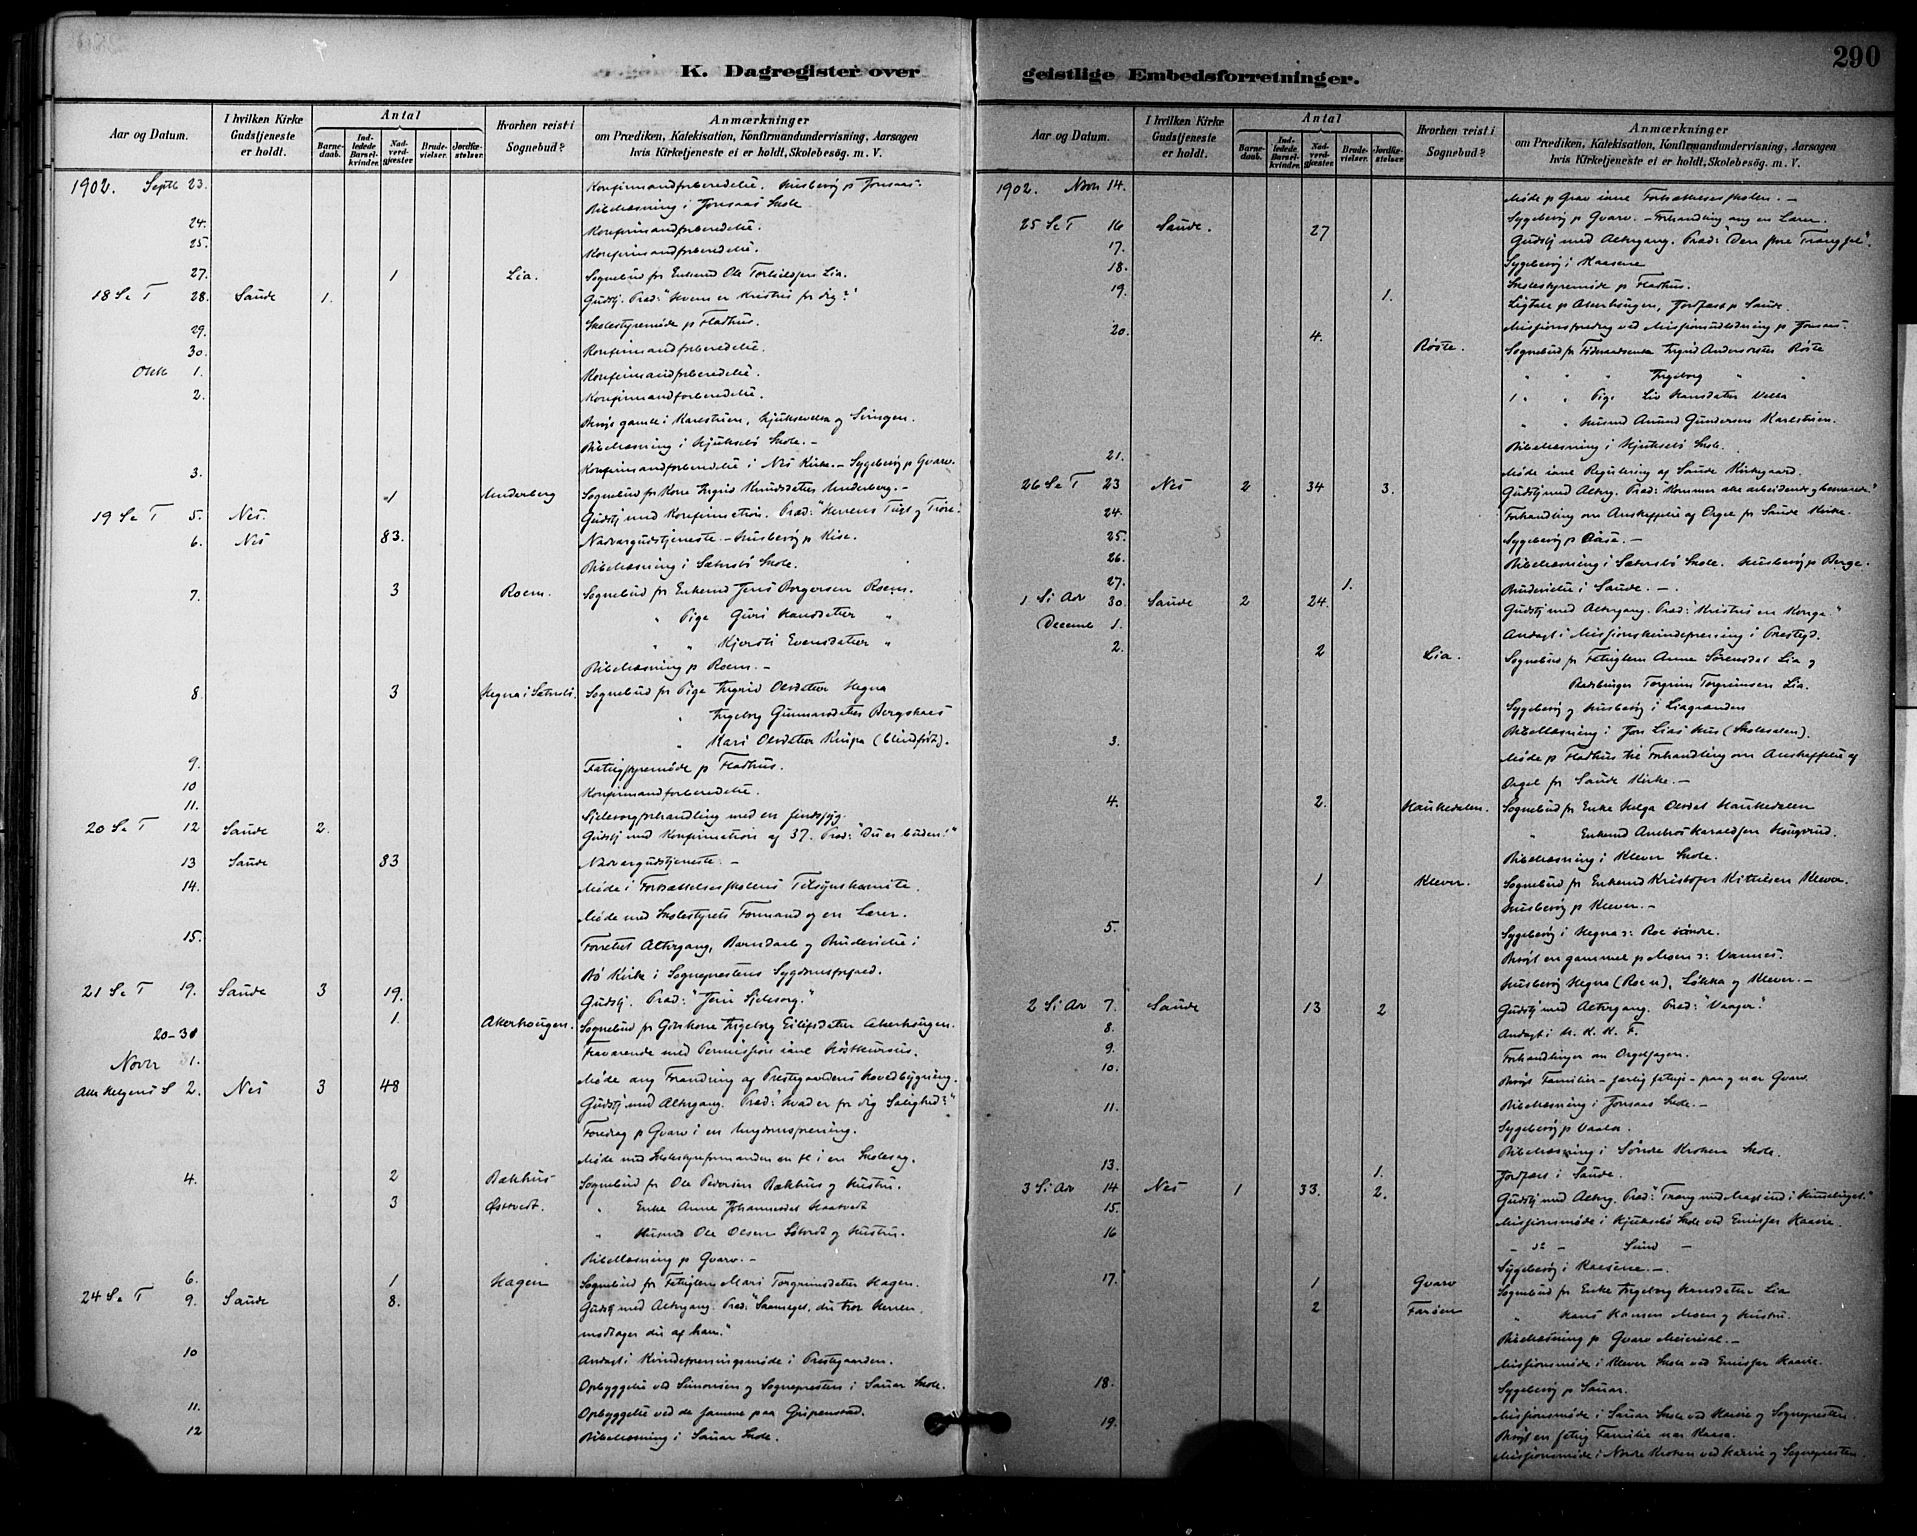 290
K. Dagregister over geistlige Embedsforretninger.
Aar og Datum.
I hvilken Kirke Gudstjeneste er holdt.
Antal
Barnedaab.
Indledede Barselkvinder.
Nadverdgjæster
Brudevielser.
Jordfæstelser.
Hvorhen reist i Sognebud?
Anmærkninger
om Prædiken, Katekisation, Konfirmandundervisning, Aarsagen
hvis Kirketjeneste ei er holdt, Skolebesög. m. V.
1902. Septb 23. Konfirmandforberedelse. Husbesøg p Jonsaas.
Bibellæsning i Jonsaas Skole
24. Konfirmandforberedelse.
25. Konfirmandforberedelse.
27. 1 Lia. Sognebud for Enkemd Ole Torkildsen Lia.
18 S e T 28. Saude 1. Gudstj. Præd: "Hvem er Kristus for dig?"
29. Skolestyremøde p Fladhus.
30. Konfirmandforberedelse.
Oktb 1. Konfirmandforberedelse.
2. Konfirmandforberedelse.
Besøg gamle i Karlstuen, Hjuksevelta og
Bibellæsning i Hjuksebø Skole.-
3. Konfirmandforberedelse i Nes Kirke.- Sygebesøg p Gvarv.
1 Underberg Sognebud for Kone Ingrid Knudsdatter Underberg.-
19 S e T 5. Nes. Gudstj med Konfirmation. Præd: "Herrens Tugt og Trøst."
6. Nes 83. Nadvergudstjeneste.- Husbesøg p Kise.
Bibellæsning i Sætersbø Skole.
7. 3 Roem. Sognebud for Enkemd Jens Borgersen Roem.
" Pige Guri Hansdatter "
" " Kjersti Evensdatter "
Bibellæsning p Roem.-
8. 3 Hegna i Sætersbø. Sognebud for Pige Ingrid Olsdatter Hegna
" Ingeborg Gunnarsdatter Bergskaas
" Kari Olsdatter Knipa (blindfødt).
9. Fattigstyremøde p Fladhus.
10 Konfirmandforberedelse.
11. Sjelesorgsbehandling med en sindssyg.
20 S e T 12 Saude 2. Gudstj med Konfirmation af 37. Præd: "Du er buden!"
13 Saude 83 Nadvergudstjeneste.-
14. Møde i Fortsættelsesskolens Tilsynskomite.
Møde med Skolestyrets Formand og en Lærer.
15. Forrettet Altergang, Barnedaab og Brudevielse i
Bø Kirke i Sogneprestens Sygdomsforfald.
21 S e T 19. Saude 3 19. Gudstj. Præd: "Jesu Sjelesorg."
1. Akerhougen. Sognebud for Gbskone Ingeborg Eilifsdatter Akerhaugen.
20-30 Fraværende med Permission
Novbr 1. Møde ang Forandring af Prestegaardens Hovedbygning.
Alle Helgens S 2. Nes 3 48 Gudstj med Altergang. Præd: "Hvad er for dig Salighed?"
Foredrag p Gvarv i en Ungdomsforening.
Møde med Skolestyreformanden i en Skolesag.
4. 2 Bakhus Sognebud for Ole Pedersen Bakhus og Hustru.
3 Østvedt. " Enke Anne Johannesdat Haatvedt
" Husmd Ole Olsen og Hustru.
Bibellæsning p Gvarv.-
6. 1 Hagen Sognebud for Fattiglem Mari Torgrimsdatter Hagen.
24 S e T 9. Saude 8. Gudstj med Altergang. Præd: "Saameget, du tror Herren,
modtager du af ham."
10 Andagt i Kvindeforeningsmøde i Prestegaarden.
Opbyggelse ved Simonsen og Sognepresten i Sauar Skole.
11. Opbyggelse ved de samme paa Gripenstad.
12 Bibellæsning i Sauar Skole.
Aar og Datum.
I hvilken Kirke Gudstjeneste er holdt.
Antal
Barnedaab.
Indledede Barselkvinder.
Nadverdgjæster
Brudevielser.
Jordfæstelser.
Hvorhen reist i Sognebud?
Anmærkninger
om Prædiken, Katekisation, Konfirmandundervisning, Aarsagen
hvis Kirketjeneste ei er holdt, Skolebesög. m. V.
1902. Novbr 14. Møde p Grav Fortsættelsesskolen.-
Sygebesøg p Gvarv.- Forhandling ang en Lærer.
25 S e T 16 Saude. 27 Gudstj med Altergang. Præd: "Den store Trængsel".
17. Sygebesøg i Kaasene
18. Skolestyremøde p Fladhus.
19. 1. Ligtale p Akerhougen, Jordfæst p Saude.
20. Missionsforedrag ved Missionsudlodning p Jonsaas.
4. Røste. Sognebud for Føderaadsenke Ingrid Andersdatter Røste
" " " Ingeborg " "
" " Pige Liv Hansdatter Velta
" " Husmd Amund Gundersen Karlstuen.
Bibellæsning i Hjuksebø Skole.
21. Møde Regulering af Saude Kirkegaard.
26 S e T 23 Nes 2 34 3. Gudstj med Alterg. Præd: "Kommer alle arbeidende og besværede."
24. Forhandling om Anskaffelse af Orgel for Saude Kirke.
25. Sygebesøg p Aase.-
26. Bibellæsning i Sætersbø Skole. Husbesøg p Berge.
27. 1. Brudevielse i Saude.-
1 S i Adv 30. Saude 2 24. Gudstj med Altergang. Præd: "Kristus en Konge."
Decemb 1. Andagt i Missionskvindeforening i Prestegd.
2. 2 Lia. Sognebud for Fattiglem Anne Sørensdat Lia og
Torgrim Torgrimsen Lia.
Sygebesøg og Husbesøg i Liagrænden
Bibellæsning i Jon Lias Hus (Skolesalen).
3. Møde p Fladhus til Forhandling om Anskaffelse af
Orgel for Saude Kirke.-
4. 2. Haukedalen. Sognebud for Enke Helga Olsdat Haukedalen
" Enkemd Ambros Haraldsen Hougrud.
Bibellæsning i Klever Skole.
1 Klever. Sognebud for Enkemd Kristofer Kittelsen Klever.
Husbesøg p Klever.-
5. Sygebesøg i Hegna
Besøgt en gammel p Moen
Husbesøg Hegna, Løkka og Klever.-
2 S i Adv 7. Saude 13 2 Gudstj med Altergang. Præd: "Vaager."
8. Andagt i U. K. K. F.
9. Forhandlinger om Orgelsagen.
10. Besøgt Familier - særlig fattige - paa og nær Gvarv.
Bibellæsning i Jonsaas Skole.-
11. Sygebesøg p Vaala.
Bibellæsning i Søndre Kroken Skole.
13. 1. Jordfæst i Saude.
3 S i Adv 14 Nes 1 33. 2. Gudstj med Alterg. Præd: "Trang med Magt ind i Himmeriget."
15. Missionsmøde i Hjuksebø Skole ved Emissær Kaasse.
16 - do - Sund -
Sygebesøg i Kaasene.-
17. 1 Gvarv Sognebud for Enke Ingeborg Hansdatter Lia
2 Farøen " Hans Hansen Moen og Hustru
Bibellæsning p Gvarv Meierisal.-
Missionsmøde i Klever Skole ved Emissær Kaasse.
18. Sygebesøg p Sauar.
Missionsmøde i Sauar Skole ved Kaasse og Sognepresten.
19. Besøgt en fattig Familie nær Kaasa.
Missionsmøde i Nordre Kroken ved Kaasse og Sognepresten.